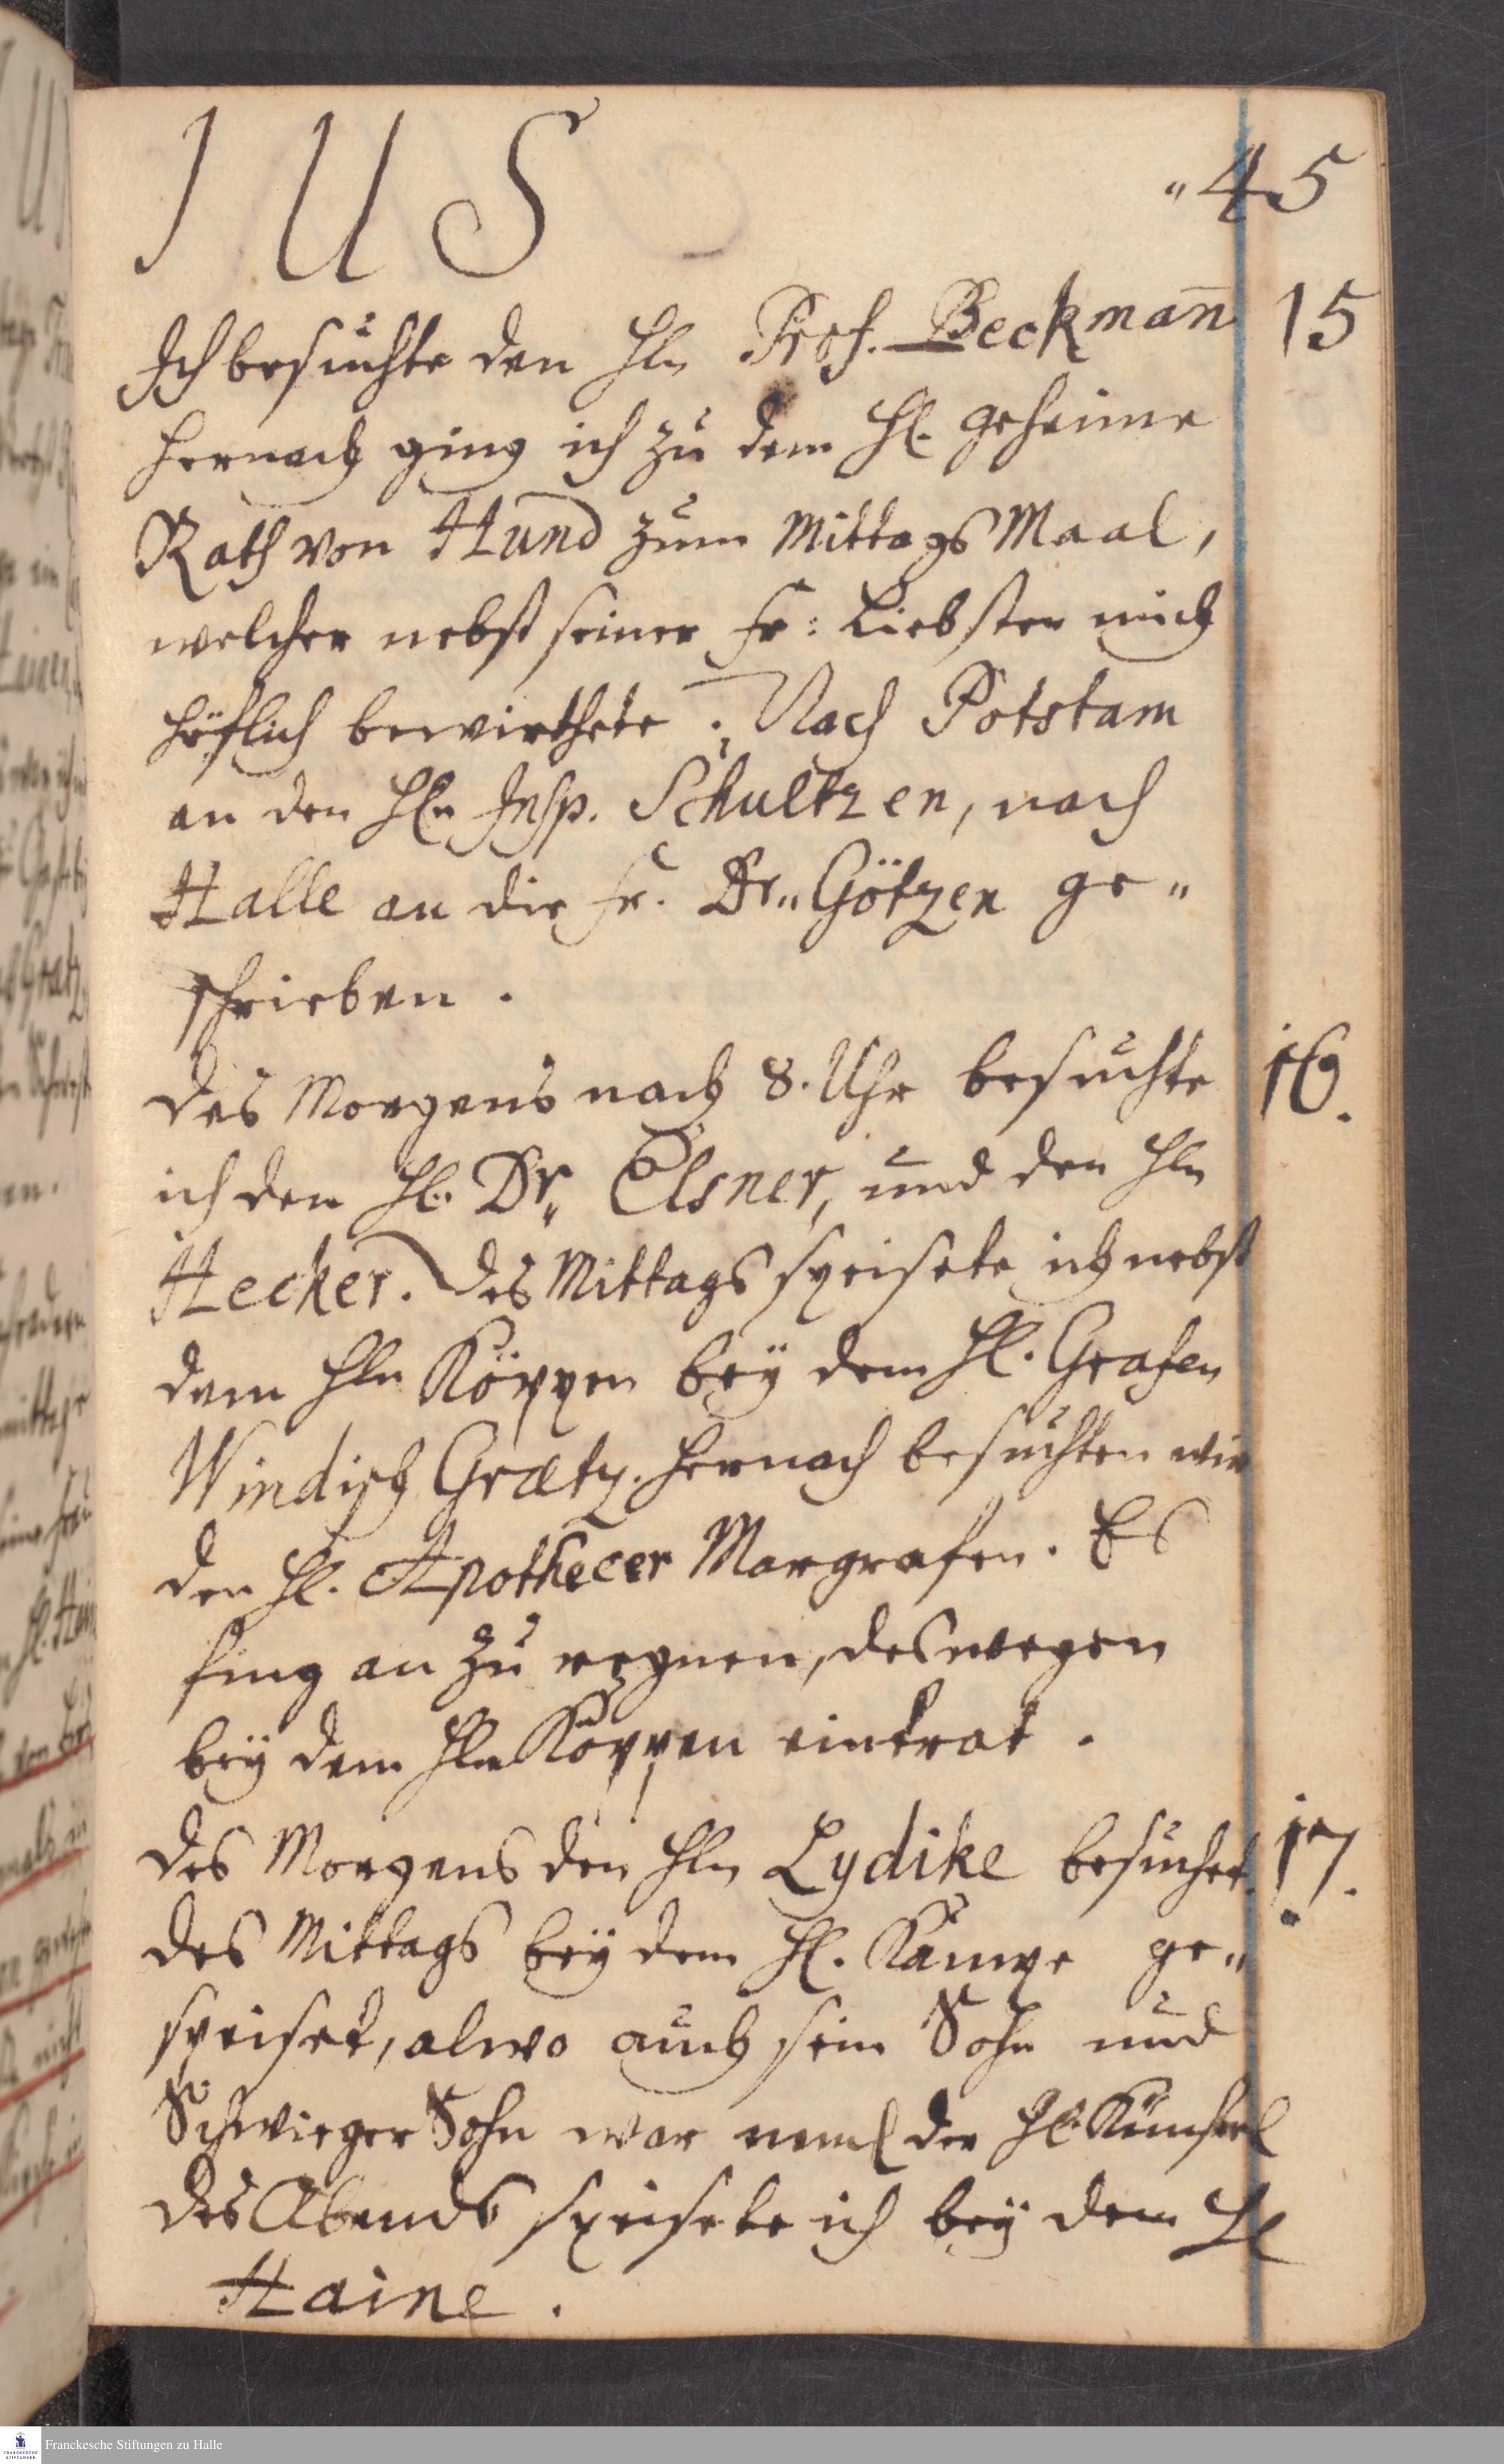 IUS
" 45
Ich besuchte den Hln Prof. Beckman̄ 15
hernach ging ich zu dem Hl. geheime
Rath von Hund zum Mittags Maal,
welcher nebst seiner Fr: Liebsten mich
höflich bewirthete. Nach Potstam
an den Hln Insp. Schultzen, nach
Halle an die Fr. Dr. Götzen ge„
schrieben.
des Morgens nach 8. Uhr besuchte 16.
ich den Hl. Dr. Elsner, und den Hln
Hecker. des Mittags speisete ich nebst
dem Hln Köppen beÿ dem Hl. Grafen
Windisch Grætz. hernach besuchten wir
den Hl. Apothecer Margrafen. Es
fing an zu regnen, deswegen
beÿ dem Hln Köppen eintrat.
des Morgens den Hln Lydike besuchet. 17.
des Mittags beÿ dem Hl. Kampe ge„
speiset, alwo auch sein Sohn und
Schwieger Sohn war neml der Hl.
des Abends speisete ich beÿ dem Hl
Haine.
Franckesche Stiftungen zu Halle